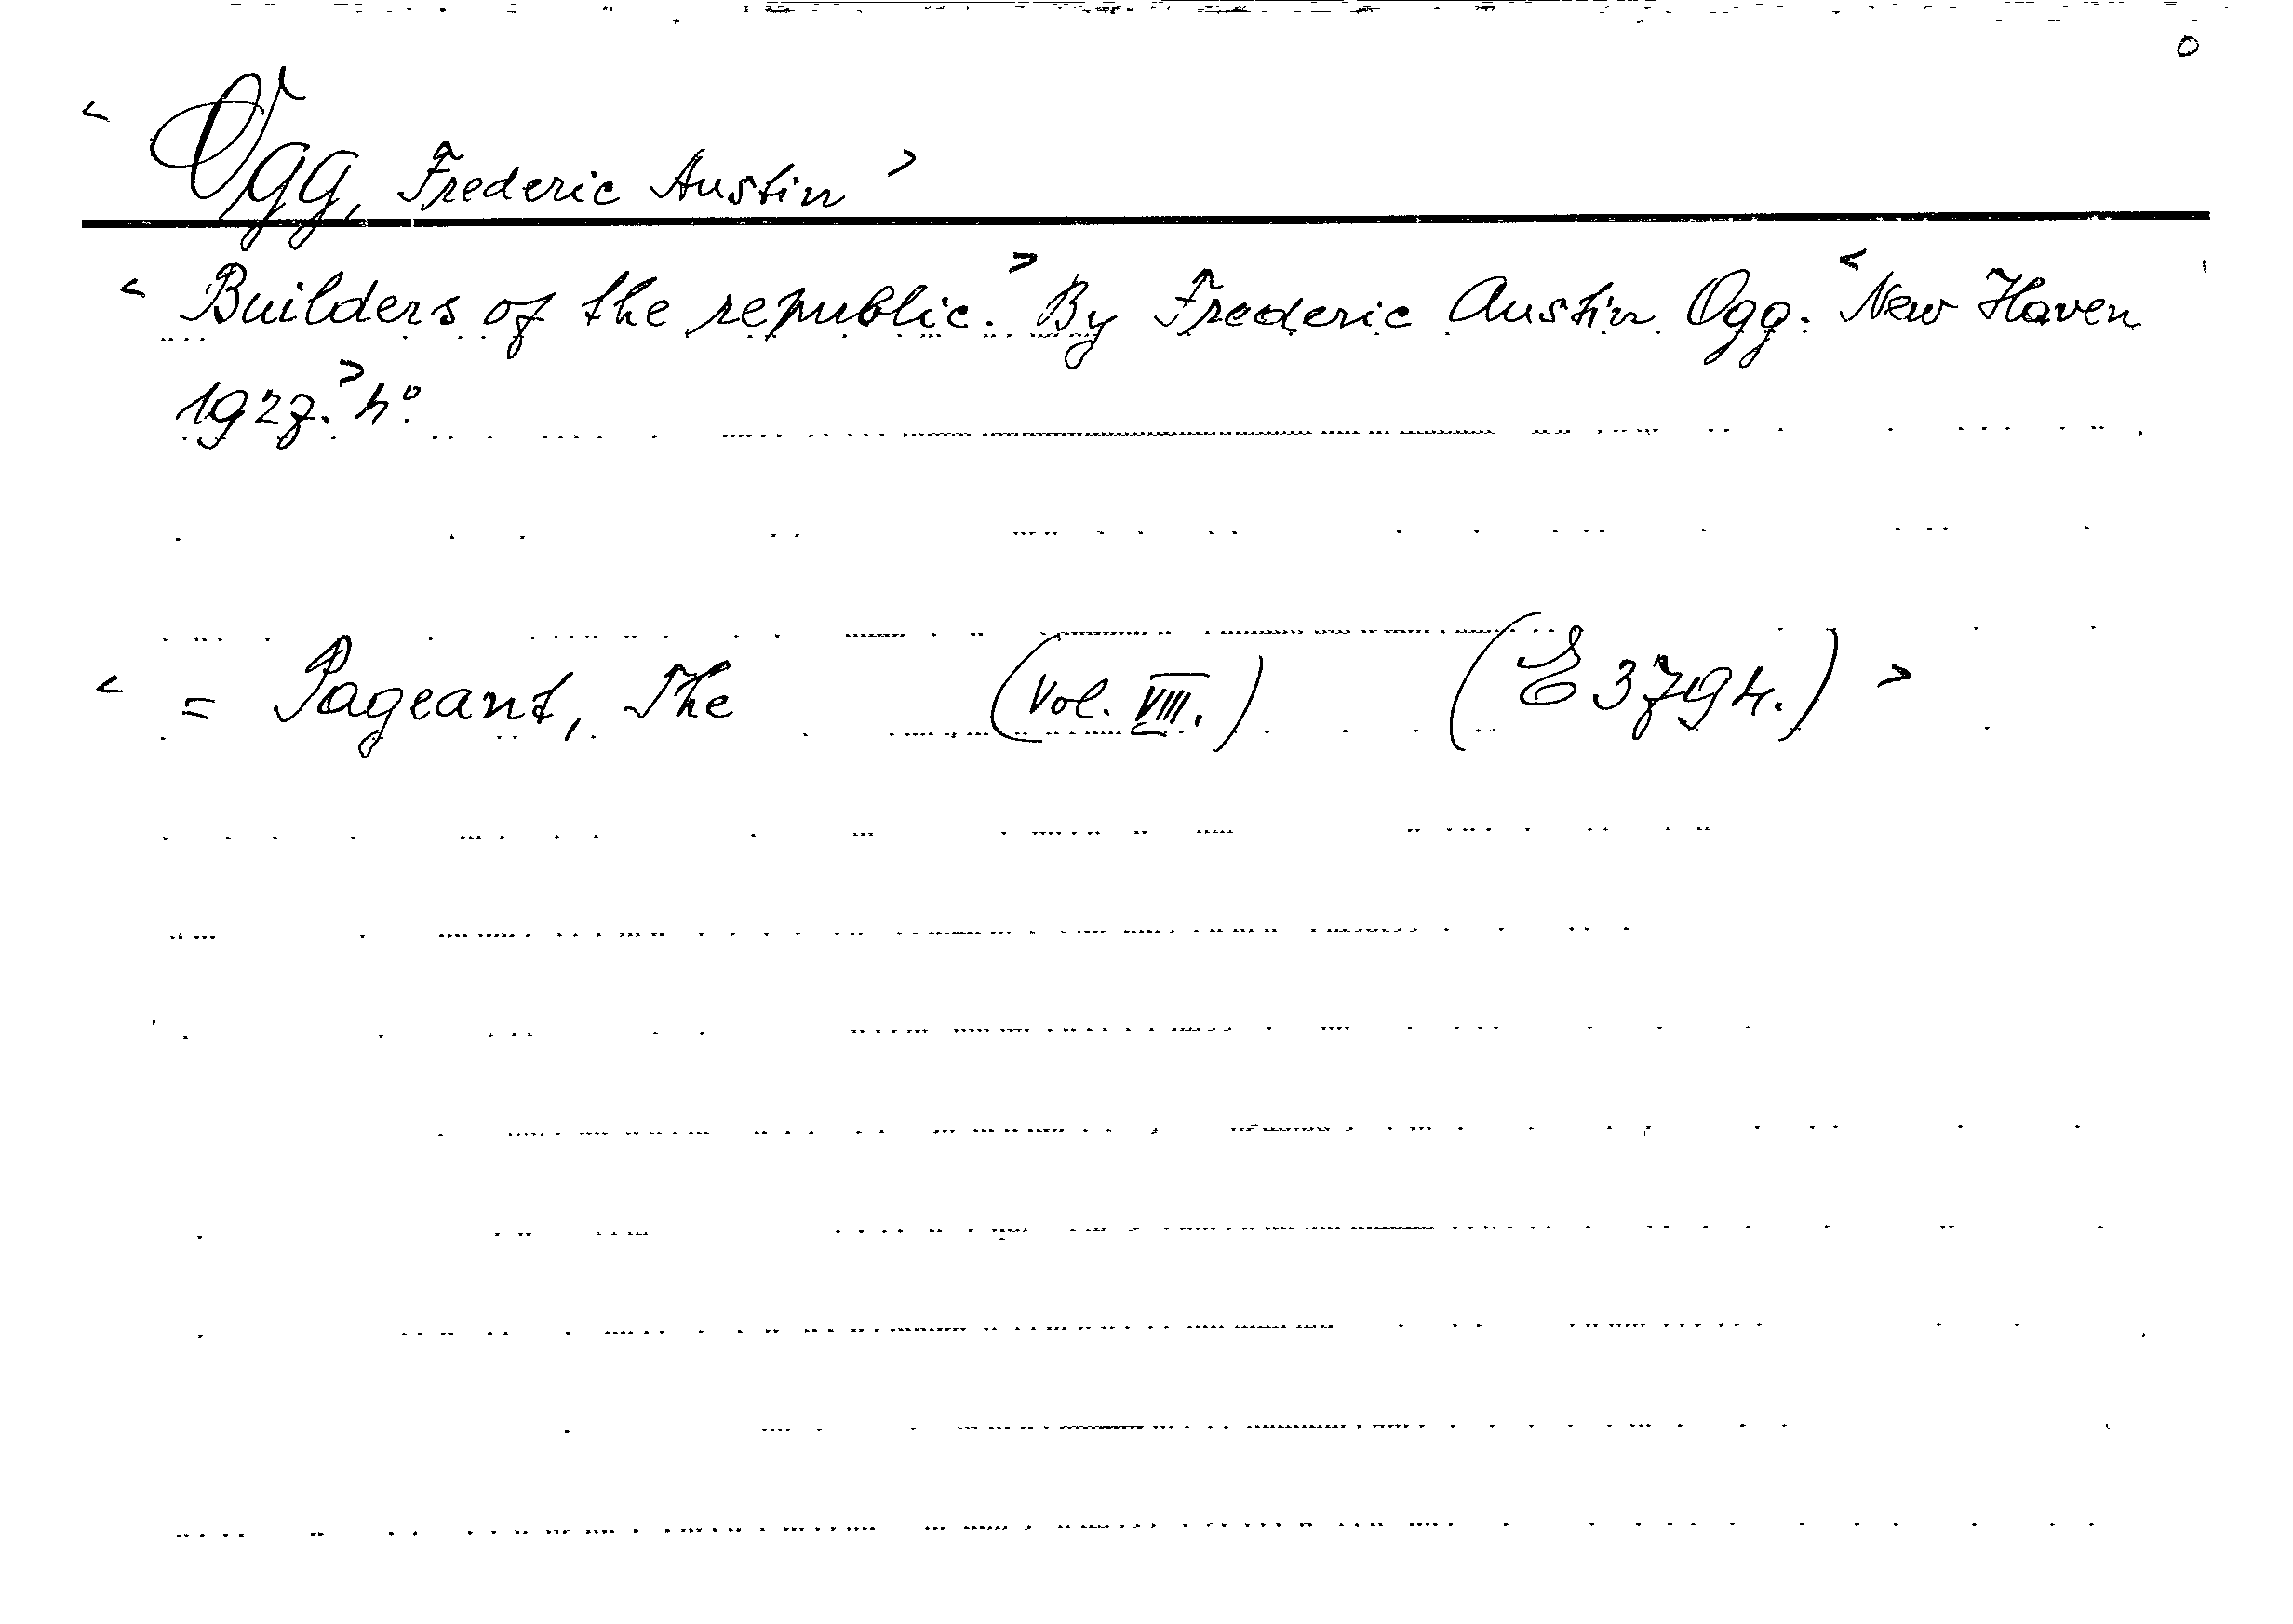 o
< Ogg, Frederic Austin >
< Builders of the republic. > By Frederic Austin Ogg. < New Haven
1927. > 4°.
< = Pageant, The (Vol. VIII.) (E 3794.) >